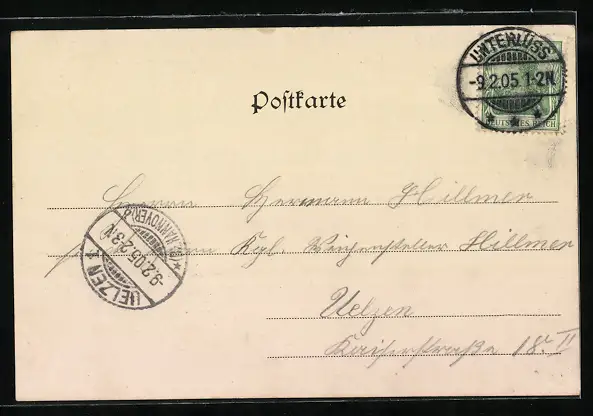 UNTERLÜSS
-9.2.05. 1-2N.
DEUTSCHES REICH
Postkarte
Herrn Hermann Hillmer
Kgl. Hillmer
Uelzen
Kaiserstraße 18 II
UELZEN 1
-9.2.05. 2-3.N.
(BZ. HANNOVER)